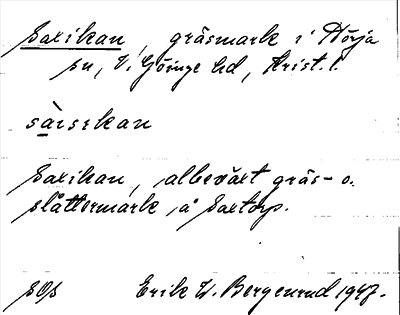 Saxikan, gräsmark i Hörja
sn, V. Göinge hd, Krist. l.
Saxikan, albeväxt gräs- o.
slåttermark å Saxtorp.
SOS Erik W. Bergenrud 1947.